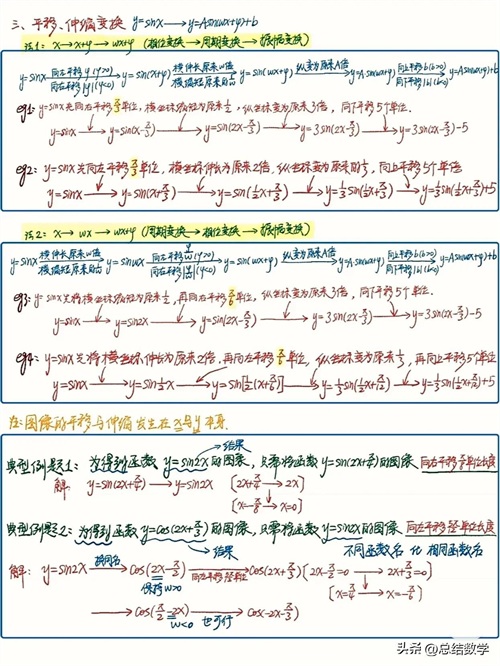 三、平移、伸缩变换 y=sinx→y=Asin(wx+φ)+b
法1: x→x+φ→wx+φ (相位变换→周期变换→振幅变换)
y=sinx 向左平移φ(φ>0) 向右平移|φ|(φ<0) y=sin(x+φ) 横伸长原来 横缩短原来 y=sin(wx+φ) 纵变为原来A倍 y=Asin(wx+φ) 向上平移b(b>0) 向下平移|b|(b<0) y=Asin(wx+φ)+b
eg1: y=sinx先向右平移π/3单位, 横坐标缩短为原来1/2, 纵坐标变为原来3倍, 向下平移5个单位.
y=sinx→y=sin(x-π/3)→y=sin(2x-π/3)→y=3sin(2x-π/3)→y=3sin(2x-π/3)-5
eg2: y=sinx先向左平移π/3单位, 横坐标伸长为原来2倍, 纵坐标变为原来的1/3, 向上平移5个单位
y=sinx→y=sin(x+π/3)→y=sin(½x+π/3)→y=⅓sin(½x+π/3)→y=⅓sin(½x+π/3)+5
法2: x→wx→wx+φ (周期变换→相位变换→振幅变换)
y=sinx 横伸长原来 横缩短原来 y=sinwx 向左平移 (φ>0) 向右平移 (φ<0) y=sin(wx+φ) 纵变为原来A倍 y=Asin(wx+φ) 向上平移b(b>0) 向下平移|b|(b<0) y=Asin(wx+φ)+b
eg3: y=sinx先将横坐标缩短为原来1/2, 再向右平移π/6单位, 纵坐标变为原来3倍, 向下平移5个单位.
y=sinx→y=sin2x→y=sin(2x-π/3)→y=3sin(2x-π/3)→y=3sin(2x-π/3)-5
eg4: y=sinx先将横坐标伸长为原来2倍, 再向左平移π/6单位, 纵坐标变为原来1/3, 再向上平移5个单位
y=sinx→y=sin½x→y=sin[½(x+π/6)]→y=⅓sin(½x+π/12)→y=⅓sin(½x+π/12)+5
注: 图像的平移与伸缩发生在x与y本身.
结果
典型例题1: 为得到函数y=sin2x的图像, 只需将函数y=sin(2x+π/4)的图像 向右平移π/8单位长度
解 y=sin(2x+π/4)→y=sin2x [2x+π/4→2x]
[x=-π/8→x=0]
典型例题2: 为得到函数y=cos(2x+π/3)的图像, 只需将函数y=sin2x的图像 向左平移 单位长度
结果 不同函数名 化 相同函数名
解: y=sin2x 换同名 cos(2x-π/2) 向左平移 单位 cos(2x+π/3) [2x-π/2=0→2x+π/3=0]
保持w>0 [x=π/4→x=-π/6]
→cos(π/2-2x)→cos(-2x-π/3)
w<0 也可行
头条 @总结数学